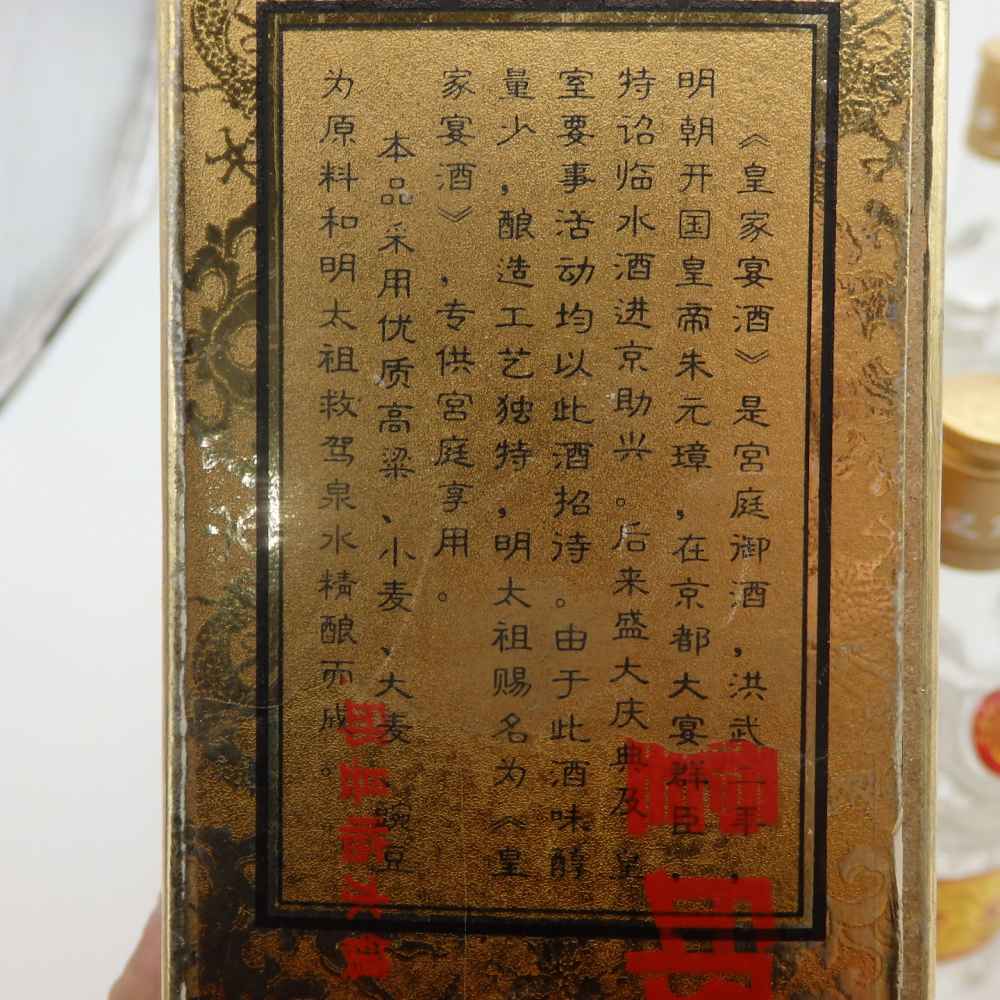 《皇家宴酒》是宫庭御酒，洪武二年，
明朝开国皇帝朱元璋，在京都大宴群臣，
特诏临水酒进京助兴。后来盛大庆典及皇
室要事活动均以此酒招待。由于此酒味醇
量少，酿造工艺独特，明太祖赐名为《皇
家宴酒》，专供宫庭享用。
本品采用优质高粱、小麦、大麦、豌豆
为原料和明太祖救驾泉水精酿而成。